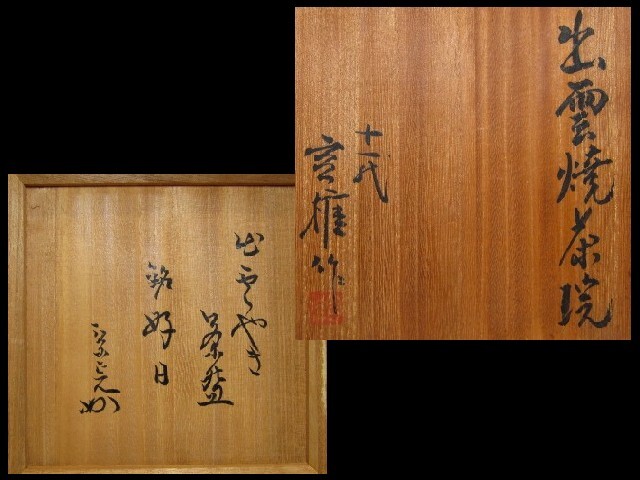 出雲焼茶碗
十一代
空権作
出雲やき
茶盌
銘 好日